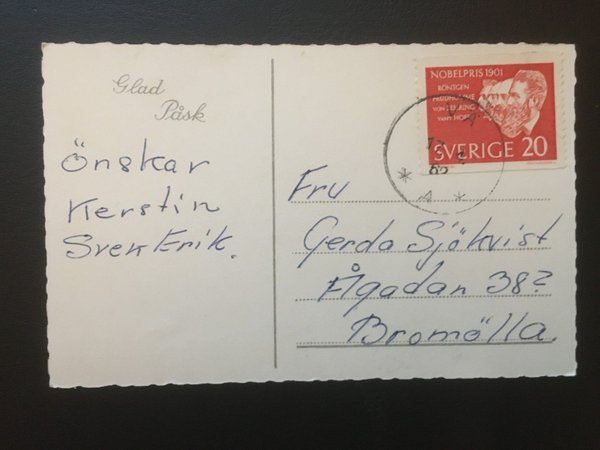 Glad
Påsk
Önskar
Kerstin
Sven Erik.
NOBELPRIS 1901
RÖNTGEN
PRUDHOMME
VON BEHRING
VAN'T HOFF
SVERIGE 20
A
Fru
Gerda Sjökvist
Ågadan 38?
Bromölla.